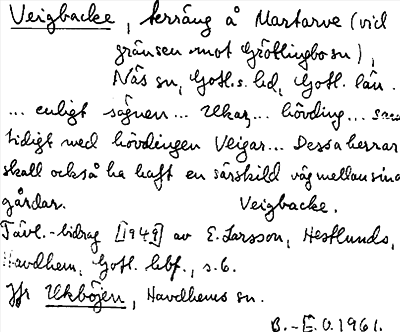 Veigbacke, terräng å Martarve (vid
gränsen mot Grötlingbo sn),
Näs sn, Gotl. s. hd, Gotl. län.
... enligt sägnen ... Ukar, ... hövding ... sam
tidigt med hövdingen Veigar ... Dessa herrar
skall också ha haft en särskild väg mellan sina
gårdar. Veigbacke.
Tävl.-bidrag [1949] av E. Larsson, Hestlunds,
Havdhem, Gotl. hbf., s. 6.
Jfr Ukböjen, Havdhems sn.
B.-E. O. 1961.